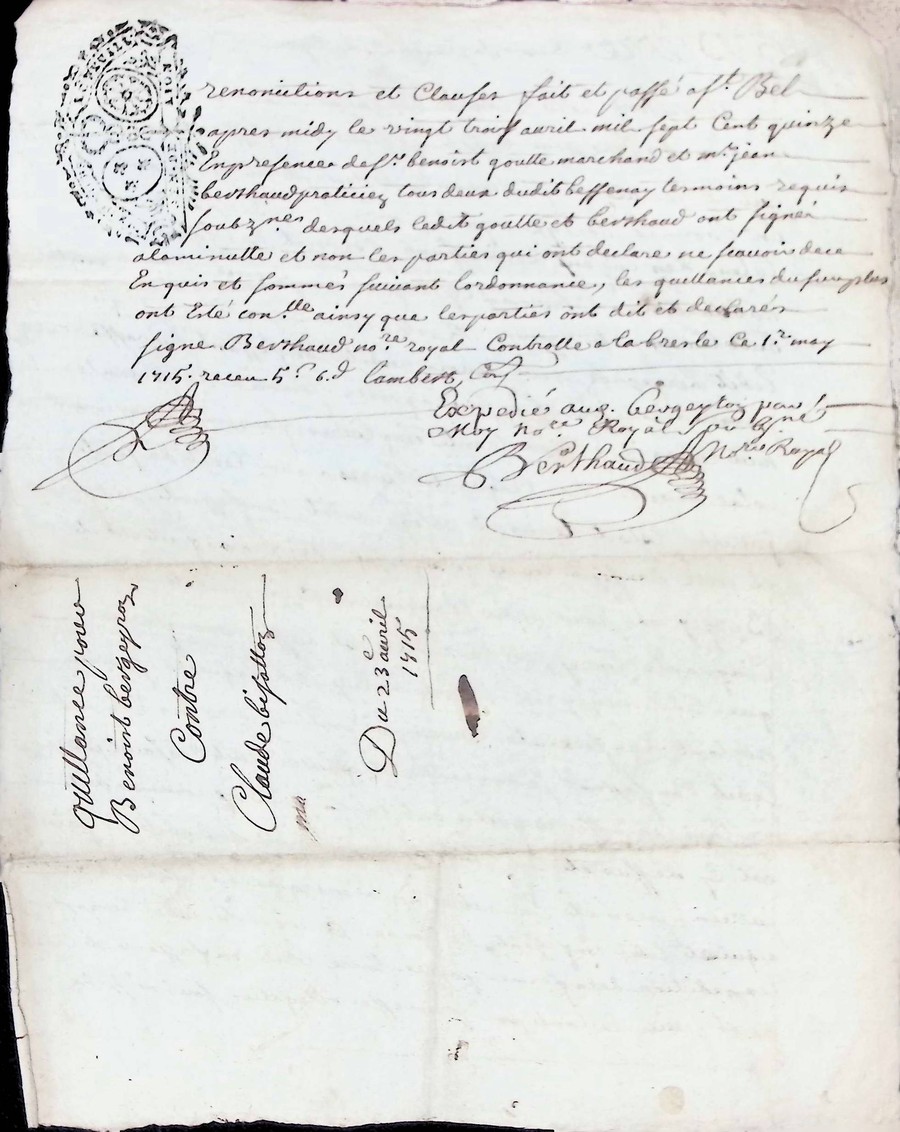 renonciations et Clauses fait et passé a St. Bel
apres midy le vingt trois avril mil sept Cent quinze
En presence de Sr. benoist goutte marchand et mr. jean
berthaud praticien tous deux dudit bessenay temoins requis
soubznes desquels ledit goutte et berthaud ont signé
a la minutte et non les parties qui ont declare ne scavoir de ce
Enquis et sommés suivant lordonnance, les quittances du
ont Esté con.lle ainsy que les parties ont dit et declarés
signe Berthaud nore royal Controlle a la bresle ce 1r may
1715. receu 5s 6d lambert
Expedié aud. bergeyron par
Moy nore Royal soubsigné
Berthaud Nore Royal
quittance pour
Benoist bergeyron
Contre
Claude
Du 23e avril
1715